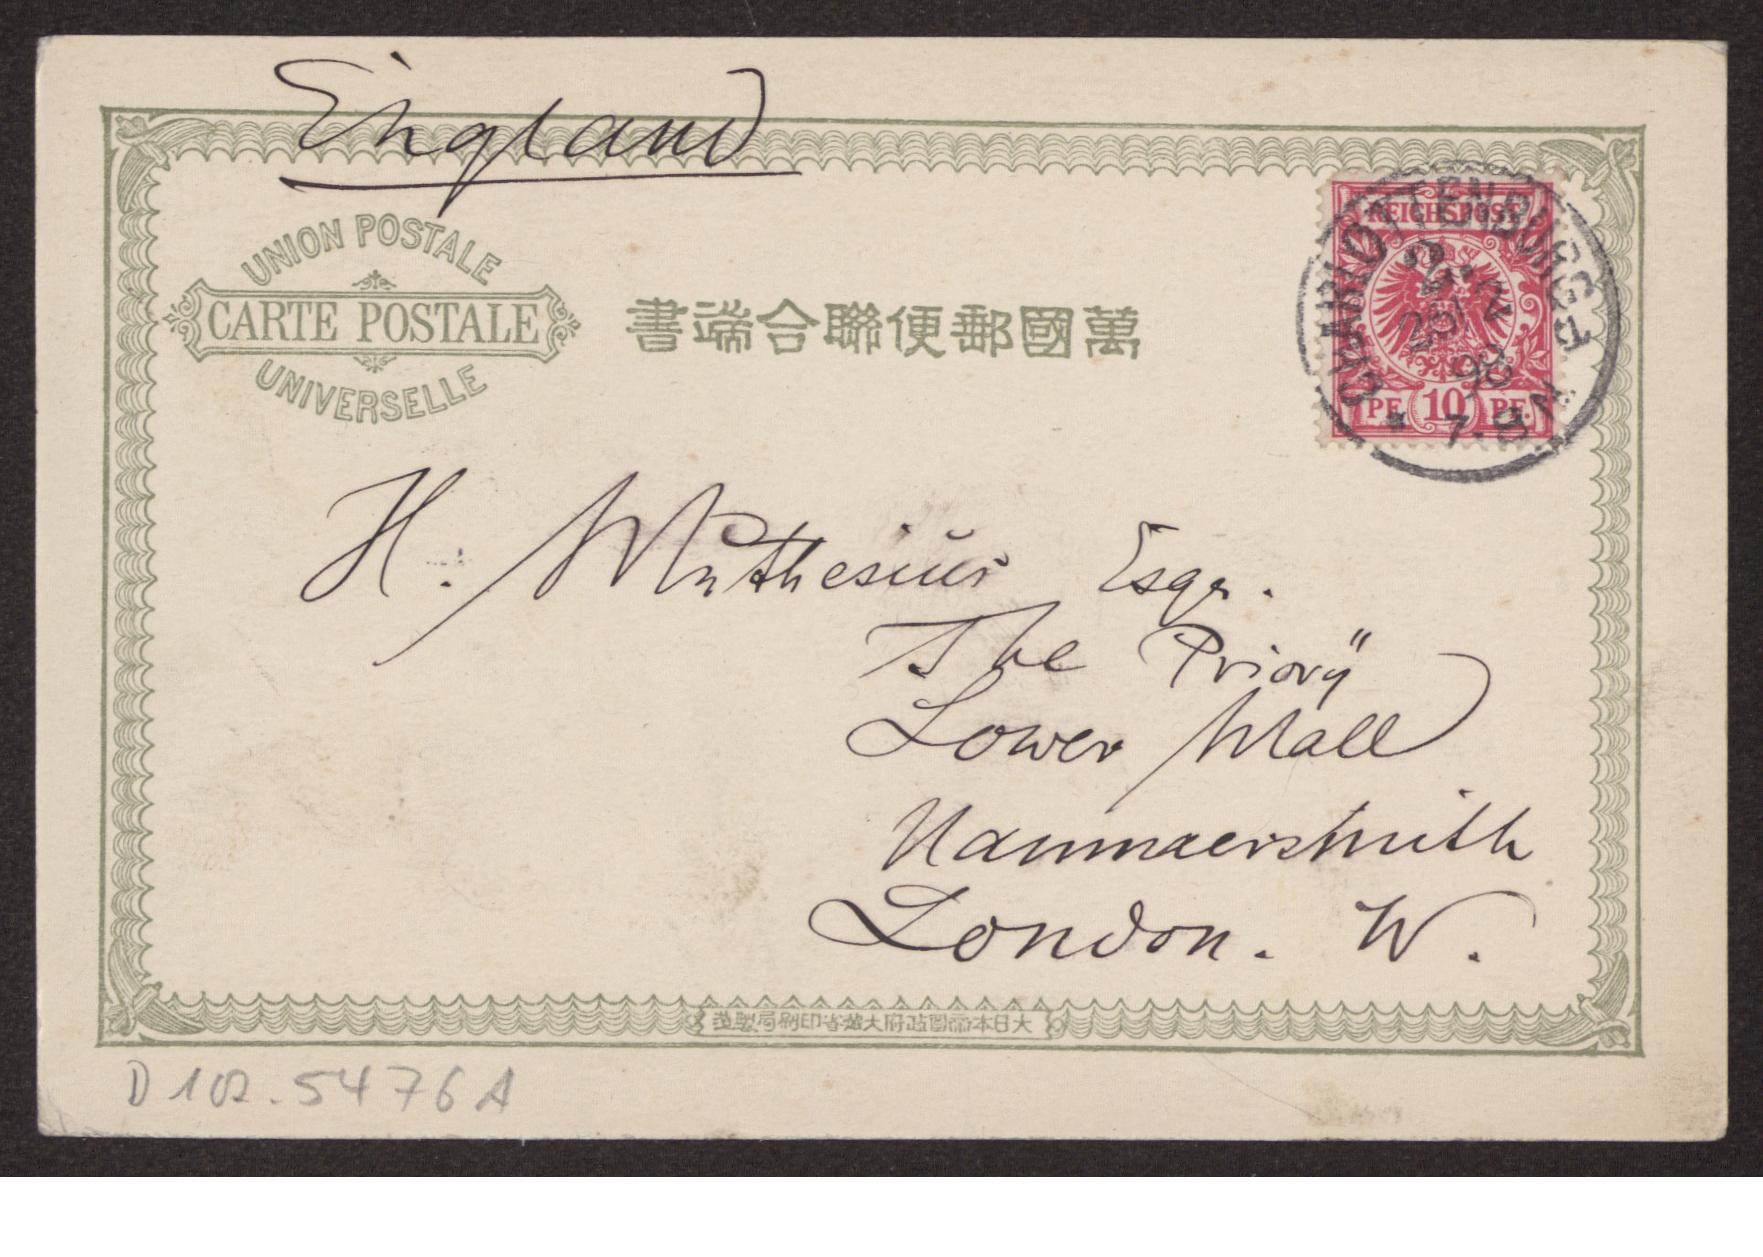 England
UNION POSTALE
CARTE POSTALE
UNIVERSELLE
書端合聯便郵國萬
REICHSPOST
PF 10 PF.
CHARLOTTENBURG
26 2
98
7-8N
H. Muthesius Esqr.
The Priory
Lower Mall
Hammaersmith
London. W.
造製局刷印省蔵大府政國帝本日大
D 102.5476A